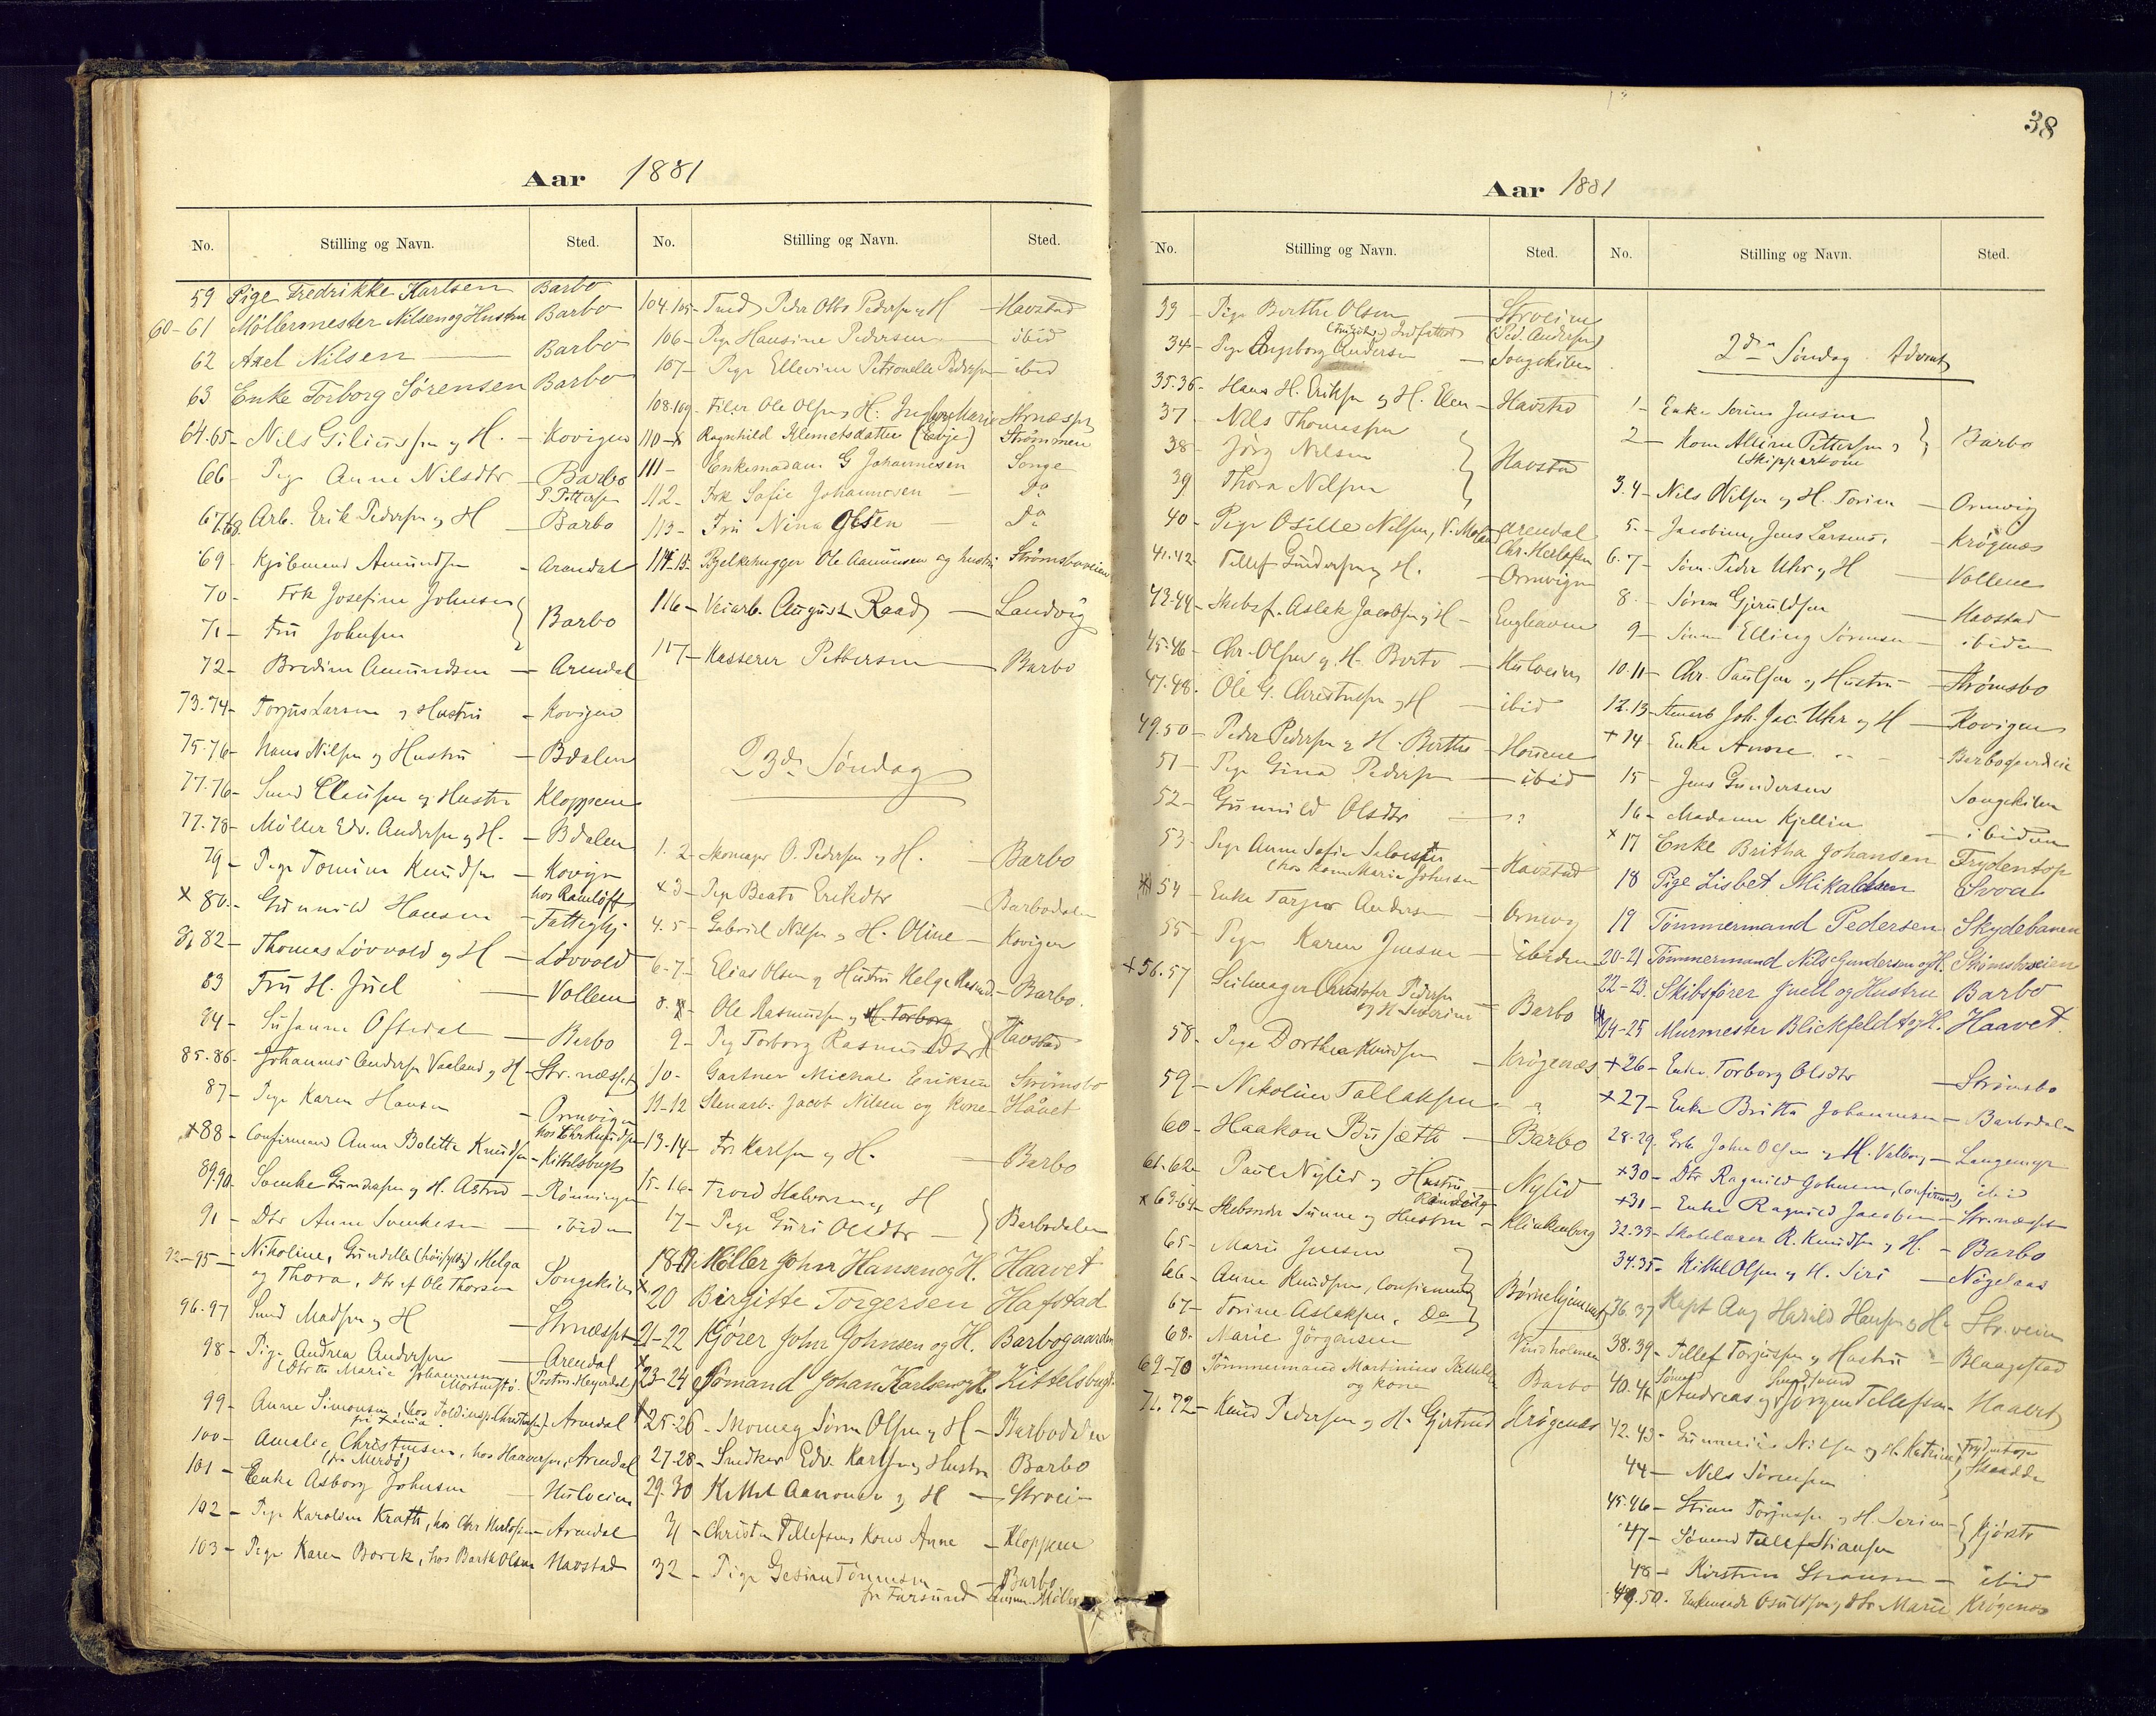 38
Aar 1881
No. Stilling og Navn. Sted.
59 Pige Fredrikke Karlsen Barbo
60-61 Möllermester Nilsen og Hustru Barbo
62 Axel Nilsen — Barbo
63 Enke Torborg Sørensen Barbo
64.65- Nils Giliussen og H. - Kovigen
66 - Pige Anne Nilsdtr - Barbo
P. Pettersen
67.68. Arb. Erik Pedersen og H - Barbo
69 - Kjöbmand Amundsen - Arendal
70- Frk Josefine Johnsen } Barbo
71- Fru Johnsen
72- Bredine Amundsen - Arendal
73.74- Torjus Larsen og Hustru - Kovigen
75.76- Hans Nilsen og Hustru - Bdalen
77.76- Smed Clausen og Hustru Kloppene
77.78- Möller Edv. Andersen og H. - Bdalen
79 - Pige Tomine Knudsen - Kovigen
x 80.- Gunnild Hansen hos Ramlöff Fattighj.
81 82 - Thomas Lövvold og H - Lövvold
83 Fru H. Juel - Vollene
84- Susanne Oftedal - Barbo
85.86- Johannes Andersen Vaaland og H - Str.næsset
87- Pige Karen Hansen - Ormvigen
hos Chr Knudsen
x88- Confirmand Anne Bolette Knudsen - Kittelsbugt
89.90- Svenke Gundersen og H. Astrid - Rønningen
91- Dtr Anne Svenkesen - ibidem
92-95- Nikoline, Gundelle (höisgtdj) Helga
og Thora, dtr af Ole Thorsen Songekilen
96.97 Smed Madsen og H - Strnæsset
98- Pige Andrea Andersen - Arendal
(Dtr til Marie Johannesen (Postm. Heyerdal)
99- Anne Simonsen, hos Toldinsp. Christensen - Arendal
100- Amalie Christensen, hos Haaversen, Arendal
(fra Merdø)
101- Enke Asborg Johnsen - Hulveien
102- Pige Karoline Krath, hos Chr Herlofsen - Arendal
103- Pige Karen Borck, hos Barth Olsen Havstad
No. Stilling og Navn. Sted.
104.105- Smed Peder Olbs Pedersen og H - Havstad
106- Pige Hansine Pedersen - ibid
107- Pige Ellevine Petronelle Pedersen - ibid
108.109- Filer Ole Olsen og H: Ingbor Marie Strnæsset
110-x Ragnhild Klemetsdatter (Evje) Strömmen
111- Enkemadam G Johannesen Songe
112- Frk Sofie Johannesen - Do
113- Fru Nina Olsen Do
114-15- Bjelkehugger Ole Aamunsen og hustru Strömsboveien
116- Veiarb. August Raad - Landvig
117- Kasserer Pettersen - Barbo
23de Søndag
1.2- Skomager O. Pedersen og H. - Barbo
x3- Pige Beate Eriksdtr - Barbodalen
4.5- Gabriel Nilsen og H. Oline - Kovigen
6-7- Elias Olsen og Hustru Helge Rasmd. - Barbo.
8.- Ole Rasmussen og H. Torborg } Havstad
9- Pig Torborg Rasmusdtr
10- Gartner Michal Eriksen Strömsbo
11-12 Stenarb. Jacob Nilsen og Kone - Håvet
13-14- Fr Karlsen og H. - Barbo
15-16- Trovd Halvorsen og H } Barbodalen
17- Pige Guri Olsdtr
18-19 Möller John Hansen og H. Haavet
x 20 Birgitte Torgersen Hafstad
21-22 Kjörer John Johnsen og H. Barbogaarden
x 23-24 Sömand Johan Karlsen og H. Kittelsbugt
x 25-26 - Skomag Sören Olsen og H - Barbodalen
27-28- Smedkar Edv. Karlsen og Hustru Barbo
29-30 Kittel Aanonsen og H - Strvei
31 - Christen Tellefsens Kone Anne - Kloppene
32 - Pige Gesine Tönnesen - Barbo
fr Farsund Möller
Aar 1881
No. Stilling og Navn. Sted.
33 - Pige Berthe Olsen - Strveien
34- Pige Ingeborg Andersen (Ped. Andersen) - Songekilen
35.36- Hans H. Eriksen og H. Elen - Havstad
37- Nils Thomassen
38- Jörg Nelsen } Havstad
39 Thora Nelsen
40- Pige Osille Nilsen, V. Moland Arendal
Chr. Herlofsen
41.42- Tellef Gundersen og H. - Ormvigen
43.44- Skibsf. Aslak Jacobsen og H - Enghaven
45-46- Chr. Olsen og H. Berte - Hulveien
47.48. Ole G. Christensen og H - ibid
49.50- Peder Pedersen og H. Berthe - Hovene
51- Pige Gina Pedersen - ibid
52- Gunnild Olsdtr - ?
53- Pige Anne Sofie
(hos Kone Marie Johnsen - Havstad
x 54- Enke Tarjer Andersen - Ormvig
55- Pige Karen Jensen - ibidem
+56.57 Seilmager Christofer Pedersen
og H Severine - Barbo
58- Pige Dorthea Knudsen - Krögenæs
59- Nikoline Tallaksen - ?
60- Haakon Busæth - Barbo
61-62 Paul Nylid og Hustru - Nylid
x 63-64- Skibsreder Sunne og Hustru - Klinkenberg
65- Marie Jensen
66- Anne Knudsen, Confirmand } Börnehjemmet
67- Torine Aslaksen, Do
68- Marie Jörgensen Vindholmen
69-70 Tömmermand Martinius
og kone Barbo
71.72- Knud Pedersen og H. Gjertrud Krögenæs
No. Stilling og Navn. Sted.
2den Söndag i Advent
1- Enke Serine Jensen
2- Kone Alline Pettersen } Barbo
(Skipperkone
3.4- Nils Nelsen og H. Torine - Ormvig
5- Jacobine, Jens Larsens, - Krögenæs
6.7- Söm. Peder Uhr og H - Vollene
8- Sören Gjeruldsen - Havstad
9- Elling Sörensen - ibidem
10.11- Chr. Paulsen og Hustru - Strömsbo
12.13- Stenarb Joh. Jac. Uhr og H - Kovigen
+14- Enke Anne - Barbogaardene
15- Jens Gundersen Songekilen
16- Madame Kjellin - ibidem
x 17 Enke Britha Johansen Frydentop
18 Pige Lisbet Mikalsen Svoal
19 Tömmermand Pedersen Skydebanen
20-21 Tömmermand Nils Gundersen og H. Strömsboveien
22-23. Skibsförer Juell og Hustru Barbo
24-25 Murmester Blickfeldt og H. Haavet.
+26- Enke Torborg Olsdtr - Strömsbo
+27- Enke Britta Johannesen - Barbodalen
28.29. Erb. John Olsen og H. Valborg - Langemyr
+30- Dtr Ragnild Johnsen, (Confirmand) ibid
+31- Enke Ragnild Jacobsen - Str.næsset
32.33- Skolelærer R. Knudsen og H. - Barbo
34.35- Kittel Olsen og H. Siri - Nögelaas
36.37 Kapt Aug Harald Hansen og H. Str.veien
38.39- Tellef Torjussen og Hustru - Blaagestad
40.41 Andreas og Jörgen Tellefsen - Haavet
42.43- Gunnerius Nilsen og H. Katrine
44- Nils Sörensen
45.46- Stian Torjussen og H. Serine } Kjörstr
47- Sömand Tellef Stiansen
48- Kirstine Stiansen - ibid
49.50. Enkemadm Osuldsen og dtr Marie Krögenæs